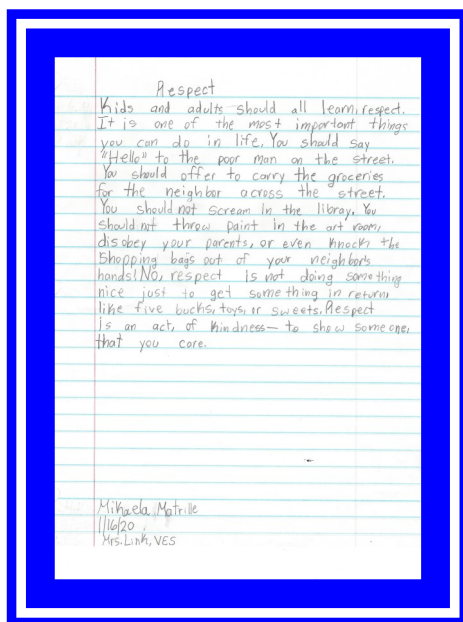 Respect
Kids and adults should all learn, respect.
It is one of the most important things
you can do in life. You should say
"Hello" to the poor man on the street.
You should offer to carry the groceries
for the neighbor across the street.
You should not scream in the libray. You
should not throw paint in the art room,
disobey your parents, or even knock the
shopping bags out of your neighbors
hands! NO, respect is not doing something
nice just to get something in return,
like five bucks, toys, or sweets. Respect
is an act, of kindness— to show someone,
that you care.
Mikaela Matrille
1/16/20
Mrs. Link, VES